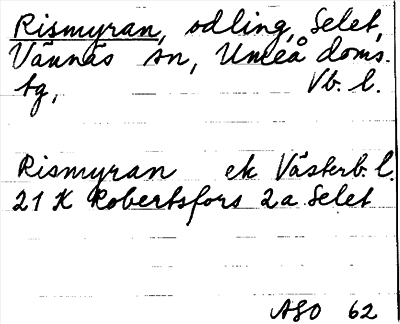 Rismyran, odling, Selet,
Vännäs sn, Umeå doms.
tg, Vb. l.
Rismyran ek Västerb. l.
21 K Robertsfors 2a Selet
ASO 62